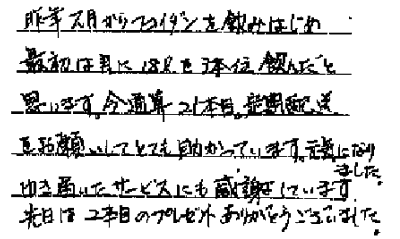 昨年 月からフコイダンを飲みはじめ
最初は 月に 本位 飲んだと
思います。今通算21本目。定期配送
をお願いしてとても助かっています。元気になりました。
ゆき届いたサービスにも感謝しています
先日は2本目のプレゼントありがとうございました。